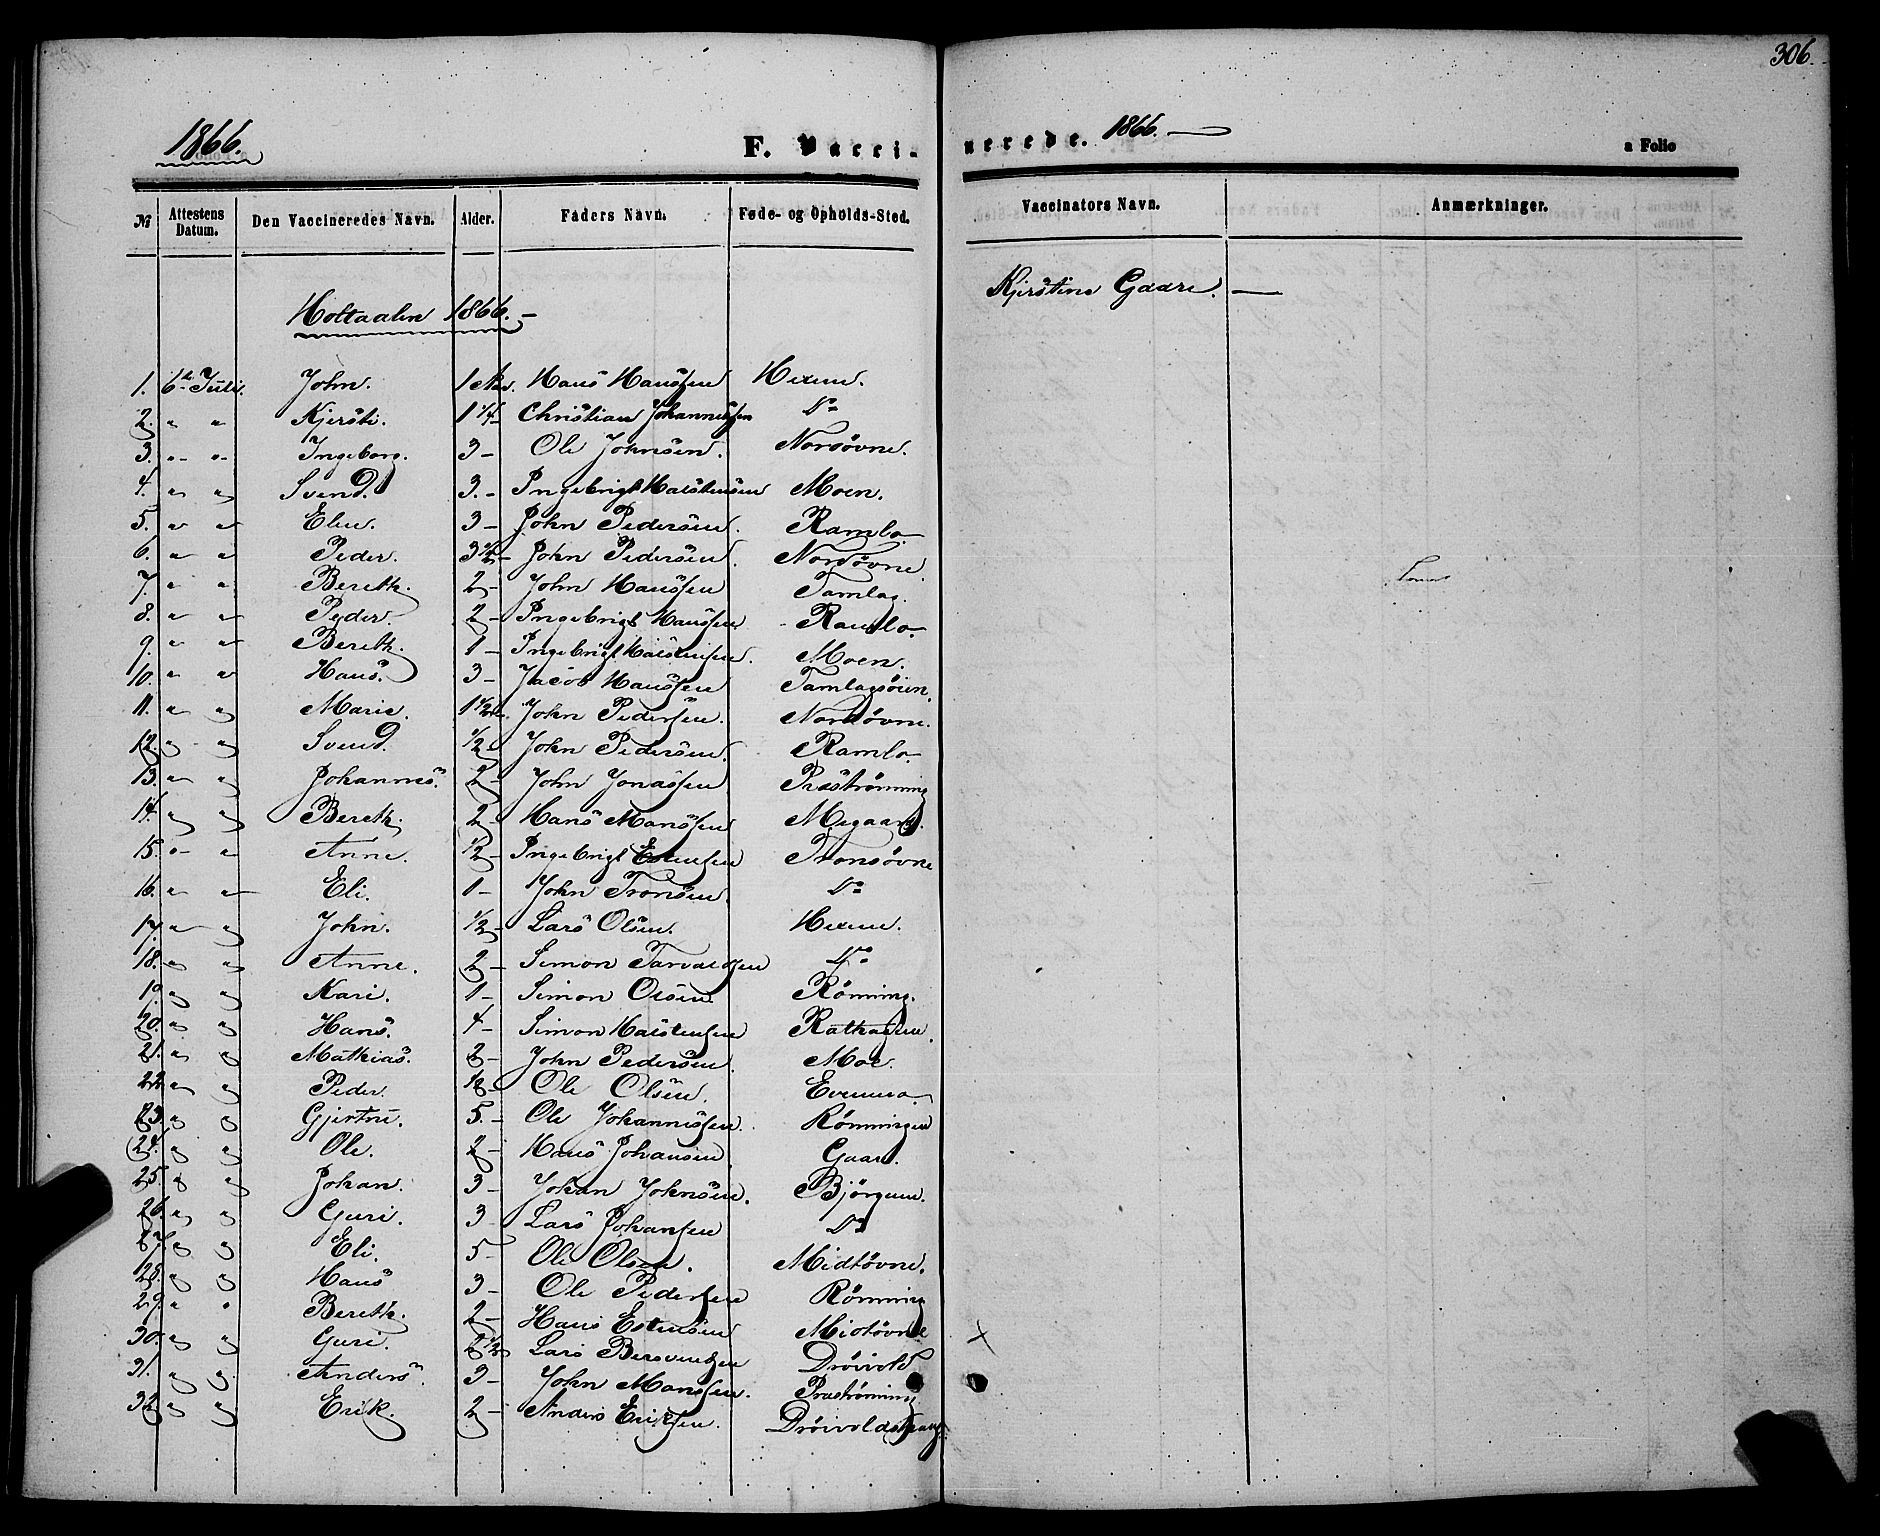 306.
1866.
F. Vaccinerede. 1866.
a Folio
№ Attestens Datum. Den Vaccineredes Navn. Alder. Faders Navn. Føde- og Opholds-Sted. Vaccinators Navn. Anmærkninger.
Holtaalen 1866. Kjerstine Gaare.
1. 6te Juli. John. 1 Hans Hanssen Hexem.
2. " " Kjersti. 1 1/4 - Christian Johannessen Do
3. " " Ingeborg. 3 - Ole Johnsen. Nordøvne.
4. " " Svend. 3. - Ingebrigt Halstensen Moen.
5. " " Elen. 3 - John Pedersen. Ramlo.
6. " " Peder. 3 1/2 - John Pedersen. Nordøvne.
7. " " Bereth. 2 - John Hanssen Tamlag.
8. " " Peder. 2 - Ingebrigt Hanssen Ramlo.
9. " " Bereth. 1 - Ingebrigt Halstensen. Moen.
10. " " Hans. 3 - Jacob Hanssen Tamlagsøien.
11. " " Marie. 1 1/2 John Pedersen. Nordøvne.
12. " " Svend. 1/2 John Pedersen. Ramlo.
13. " " Johannes. 2 - John Jonassen Præstrønning
14. " " Bereth. 2 - Hans Hanssen Megaard.
15. " " Anne. 1/2 - Ingebrigt Estensen Tronsøvne
16. " " Eli. 1 - John Tronsen. Do
17. " " John. 1/2 - Lars Olsen. Hexem.
18. " " Anne. 2 - Simon Do
19. " " Kari. 1 - Simon Olsen. Rønning.
20. " " Hans. 4 - Simon Halstensen
21. " " Mathias. 2 - John Pedersen. Moe.
22. " " Peder. 1/2 - Ole Olsen.
23. " " Gjertru. 5. - Ole Johannessen. Rønningen
24. " " Ole. 2 - Hans Johansen Gaare.
25. " " Johan. 3 - Johan Johnsen. Bjørgum.
26. " " Guri. 3 - Lars Johansen Do
27. " " Eli. 5 - Ole Olsen. Midtøvne.
28. " " Hans 3 - Ole Pedersen Rønning
29. " " Bereth. 2 - Hans Estensen Midtøvne X
30. " " Guri. 2 1/2 Lars Bersvendsen Drøivold
31. " " Anders. 3 - John Hanssen. Præstrønning
32. " " Erik. 2 - Anders Eriksen.